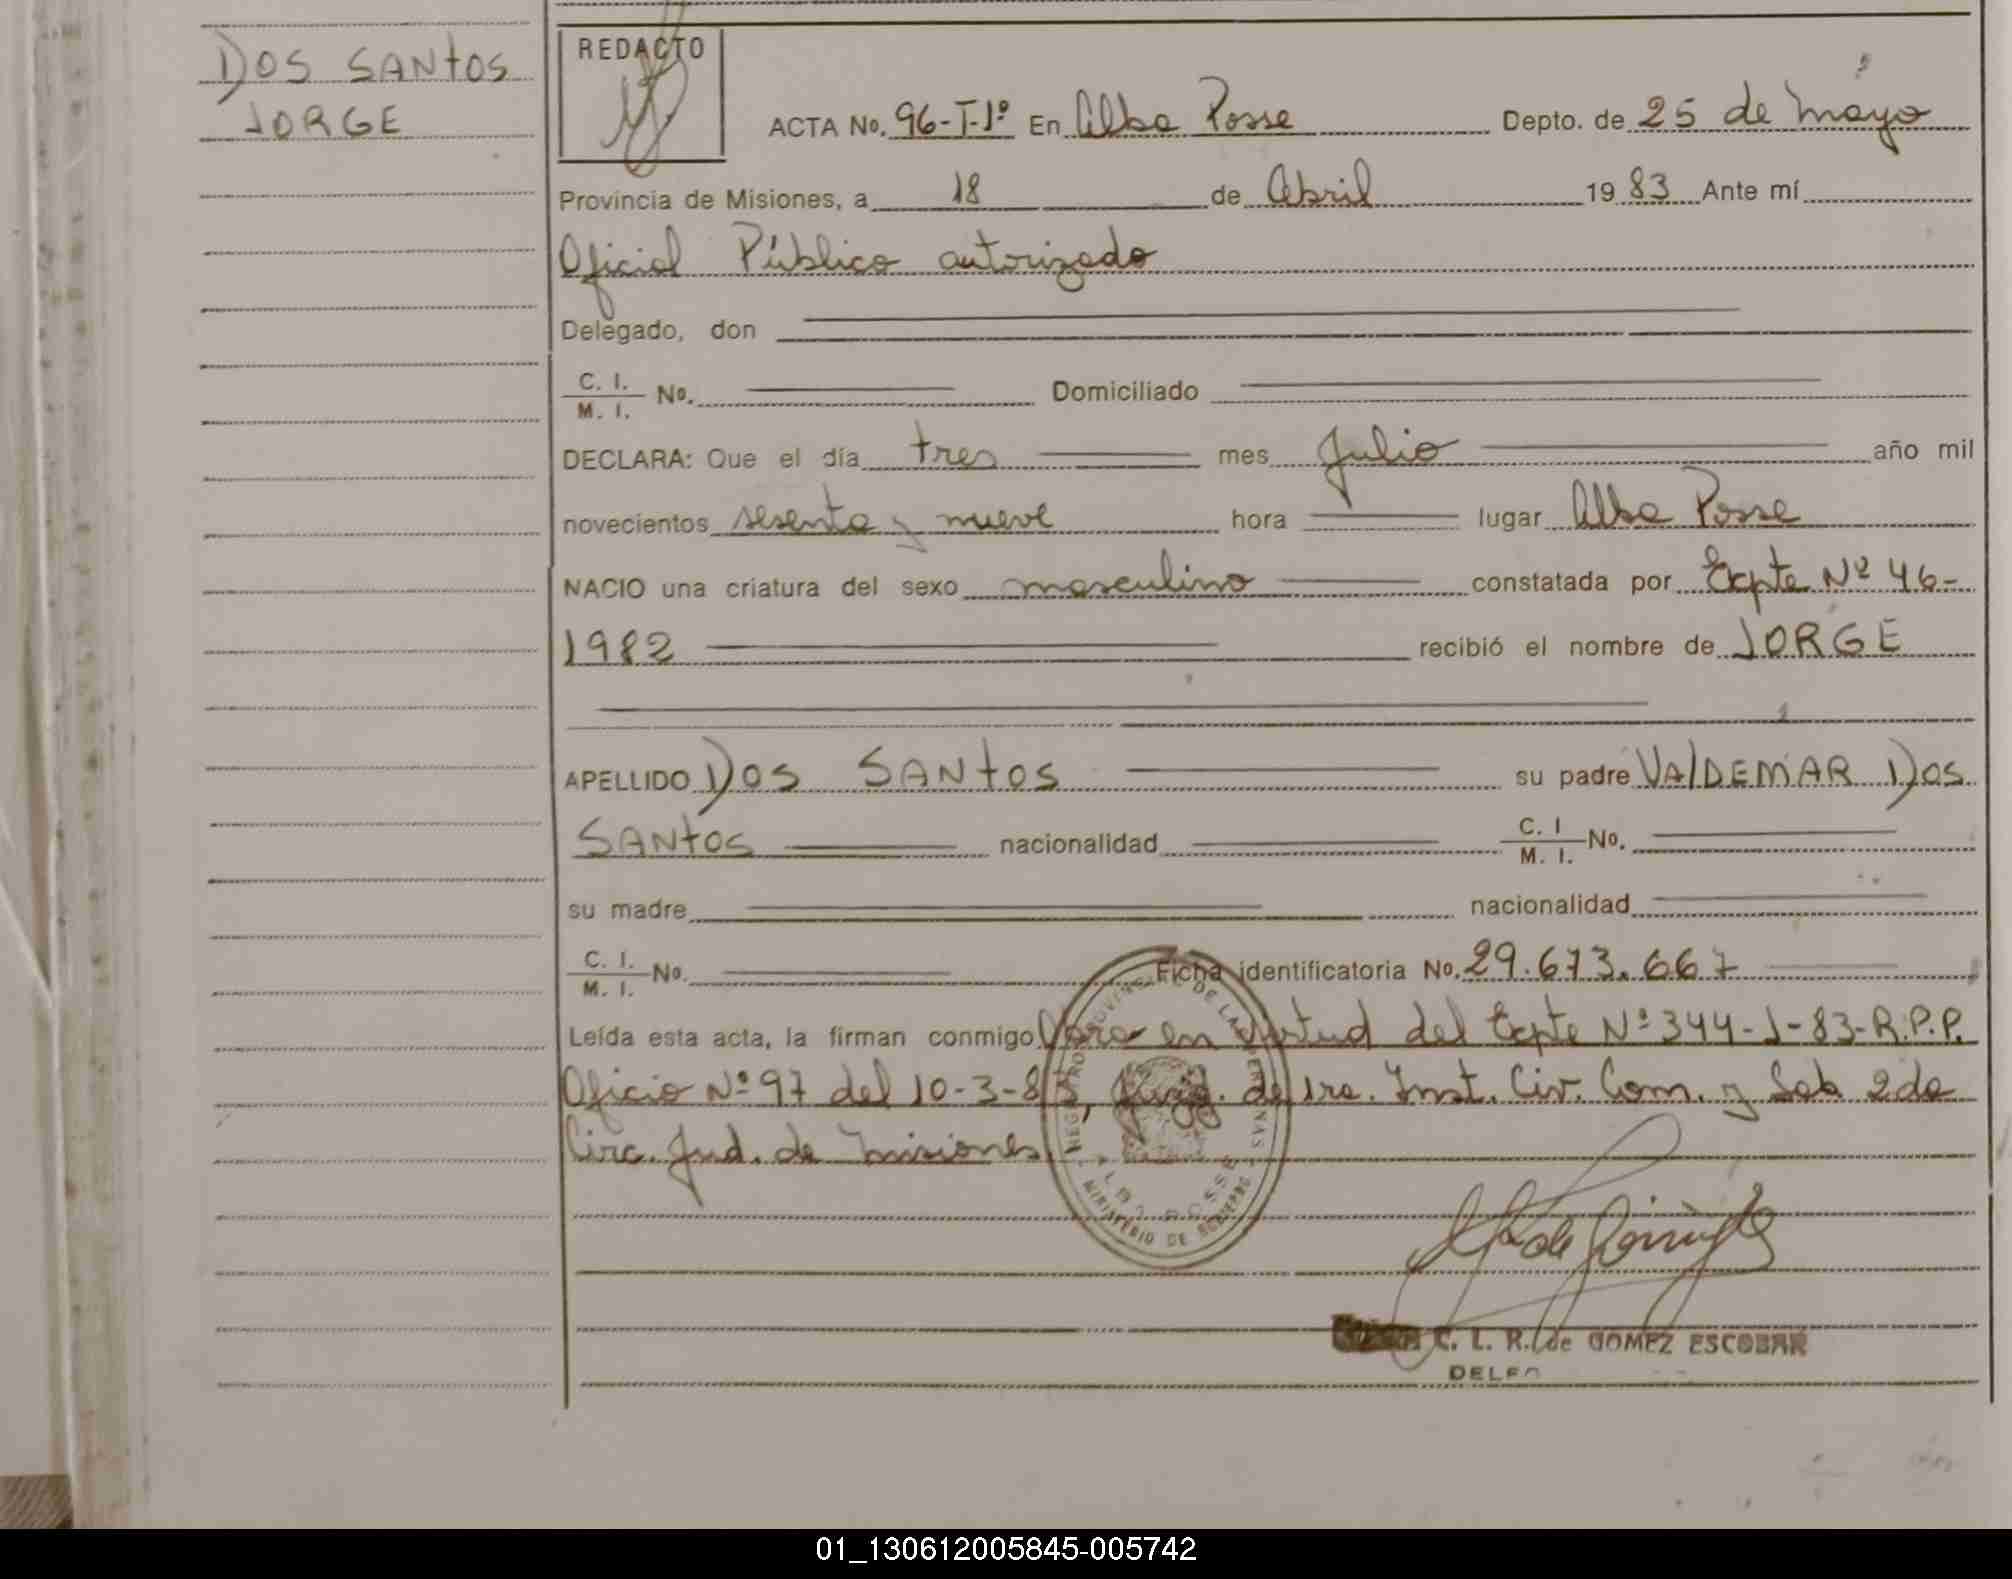 DOS SANTOS
JORGE
REDACTO
ACTA No. 96-T-1º En Alba Posse Depto. de 25 de Mayo
Provincia de Misiones, a 18 de Abril 1983 Ante mí
Oficial Público autorizado
Delegado, don
C. I.
M. I. No. Domiciliado
DECLARA: Que el día tres mes Julio año mil
novecientos sesenta y nueve hora lugar Alba Posse
NACIO una criatura del sexo masculino constatada por Expte Nº 46-
1982 recibió el nombre de JORGE
APELLIDO DOS SANTOS su padre VALDEMAR DOS
SANTOS nacionalidad C. I
M. I. No.
su madre nacionalidad
C. I.
M. I. No. Ficha identificatoria No. 29.673.667
Leída esta acta, la firman conmigo en virtud del Expte Nº 344-J-83-R.P.P.
Oficio Nº 97 del 10-3-83, Juzg. de 1ra. Inst. Civ. Com. y Lab 2da
Circ. Jud. de Misiones
REGISTRO PROVINCIAL DE LAS PERSONAS
ALBA POSSE
MINISTERIO DE GOBIERNO
C. L. R. de GOMEZ ESCOBAR
01_130612005845-005742